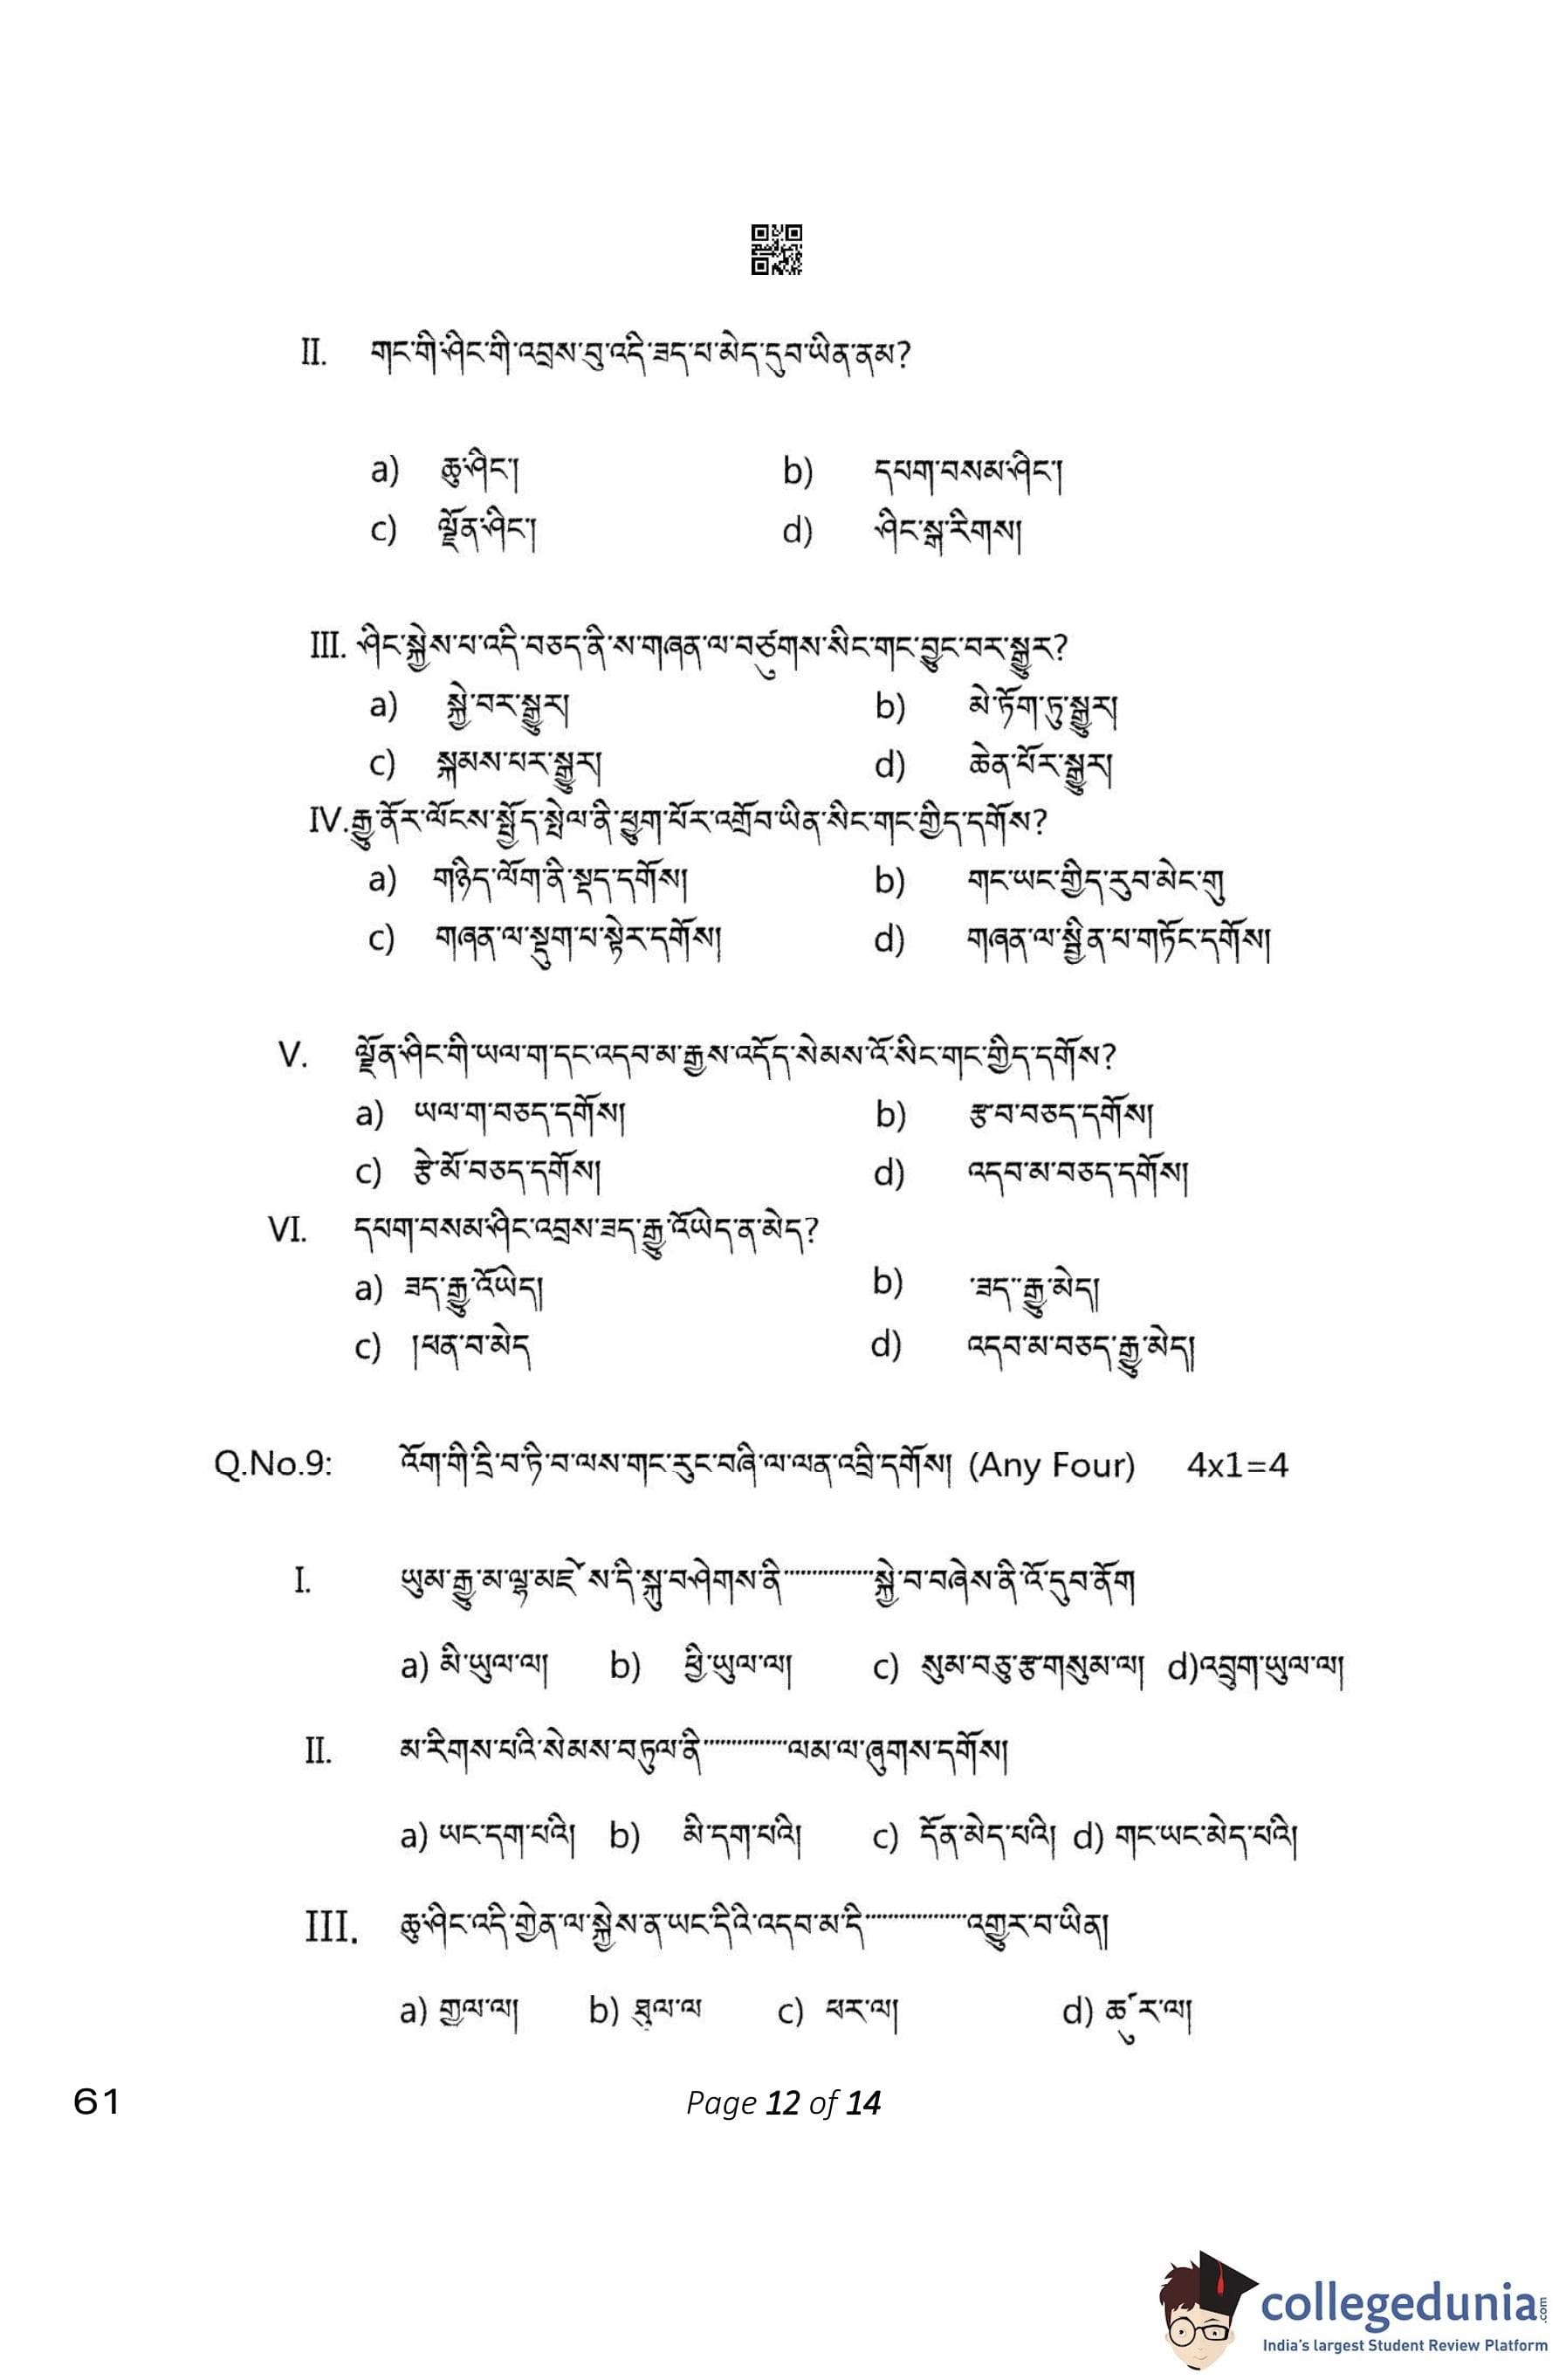 II. གང་གི་ཤིང་གི་འབྲས་བུ་འདི་ཟད་པ་མེད་དུབ་ཡིན་ནམ?
a) ཆུ་ཤིང༌། b) དཔག་བསམ་ཤིང༌།
c) ལྗོན་ཤིང༌། d) ཤིང་སྣ་རིགས།
III. ཤིང་སྐྱེས་པ་འདི་བཅད་ནི་ས་གཞན་ལ་བཙུགས་སིང་གང་བྱུང་བར་སྒྱུར?
a) སྐྱེ་བར་སྒྱུར། b) མེ་ཏོག་ཏུ་སྒྱུར།
c) སྐམས་པར་སྒྱུར། d) ཆེན་པོར་སྒྱུར།
IV.རྒྱུ་ནོར་ལོངས་སྤྱོད་སྤེལ་ནི་ཕྱུག་པོར་འགྲོབ་ཡིན་སིང་གང་གྱིད་དགོས?
a) གཉིད་ལོག་ནི་སྡད་དགོས། b) གང་ཡང་གྱིད་རུབ་མེང་གུ
c) གཞན་ལ་སྡུག་པ་སྟེར་དགོས། d) གཞན་ལ་སྦྱིན་པ་གཏོང་དགོས།
V. ལྗོན་ཤིང་གི་ཡལ་ག་དང་འདབ་མ་རྒྱས་འདོད་སེམས་འོ་སིང་གང་གྱིད་དགོས?
a) ཡལ་ག་བཅད་དགོས། b) རྩ་བ་བཅད་དགོས།
c) རྩེ་མོ་བཅད་དགོས། d) འདབ་མ་བཅད་དགོས།
VI. དཔག་བསམ་ཤིང་འབྲས་ཟད་རྒྱུ་འོཡེད་ན་མེད?
a) ཟད་རྒྱུ་འོཡེད། b) ་ཟད་་རྒྱུ་མེད།
c) །ཕན་བ་མེད d) འདབ་མ་བཅད་རྒྱུ་མེད།
Q.No.9: འོག་གི་དྲི་བ་ཏི་བ་ལས་གང་རུང་བཞི་ལ་ལན་འབྲི་དགོས། (Any Four) 4x1=4
I. ཡུམ་རྒྱུ་མ་ལྷ་མཛེས་དི་སྐུ་བ་ཤེགས་ནི་་་་་་་་་་་་་་སྐྱེ་བ་བཞེས་ནི་འོ་དུབ་ནོག
a) མི་ཡུལ་ལ། b) ཕྱི་ཡུལ་ལ། c) སུམ་བཅུ་རྩ་གསུམ་ལ། d)འབྲུག་ཡུལ་ལ།
II. མ་རིགས་པའི་སེམས་བཏུལ་ནི་་་་་་་་་་་་་་ལམ་ལ་ཞུགས་དགོས།
a) ཡང་དག་པའི། b) མི་དག་པའི། c) དོན་མེད་པའི། d) གང་ཡང་མེད་པའི།
III. ཆུ་ཤིང་འདི་གྱེན་ལ་སྐྱེས་ན་ཡང་དིའི་འདབ་མ་དི་་་་་་་་་་་་་་་་་འགྱུར་བ་ཡིན།
a) གྱལ་ལ། b) ཐུལ་ལ c) ཕར་ལ། d) ཚུར་ལ།
61 Page 12 of 14
collegedunia.com
India's largest Student Review Platform